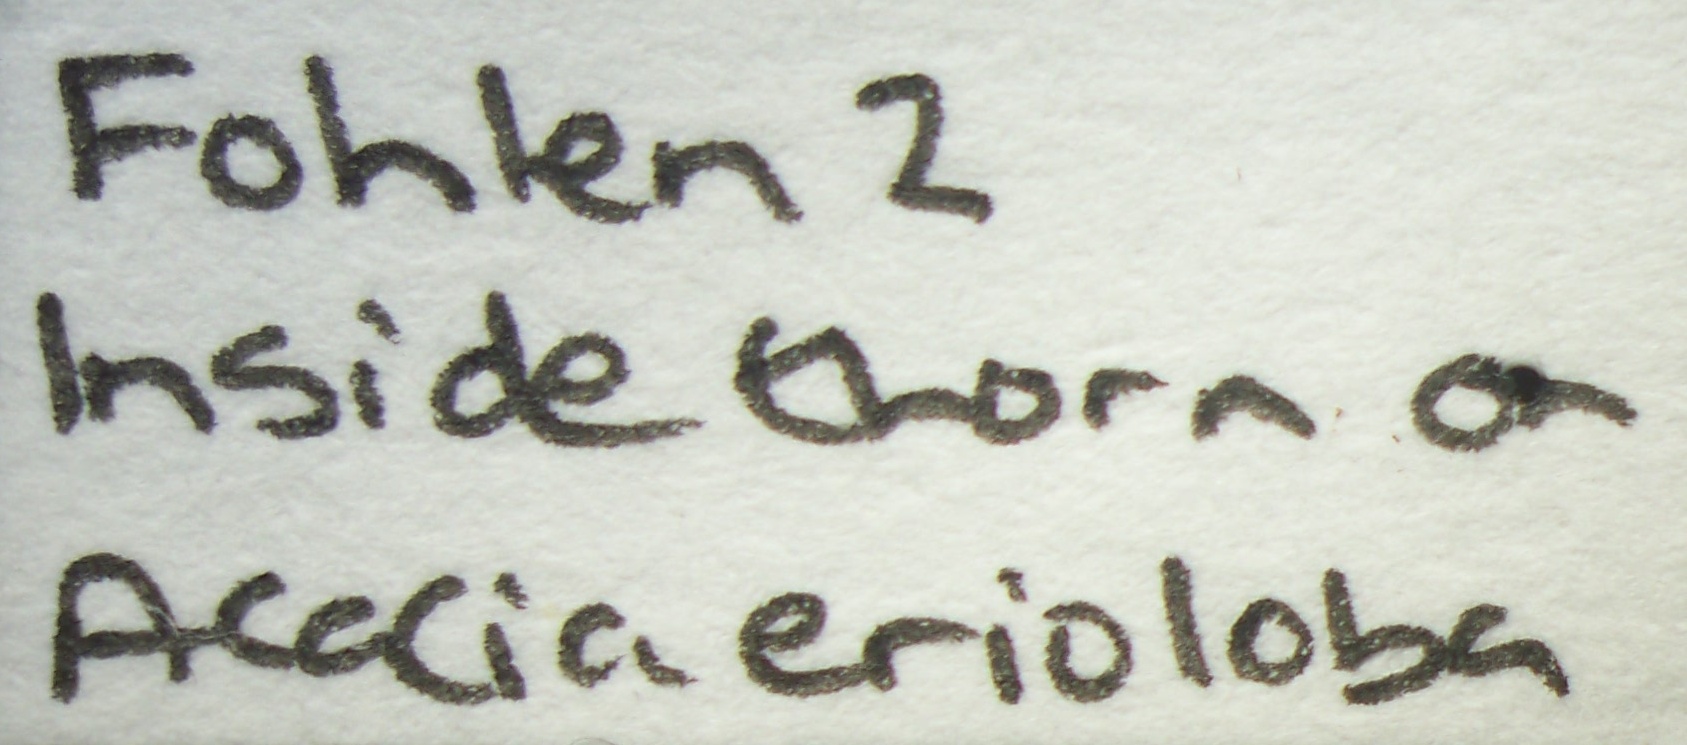 Fohlen 2
Inside thorn on
Acacia erioloba